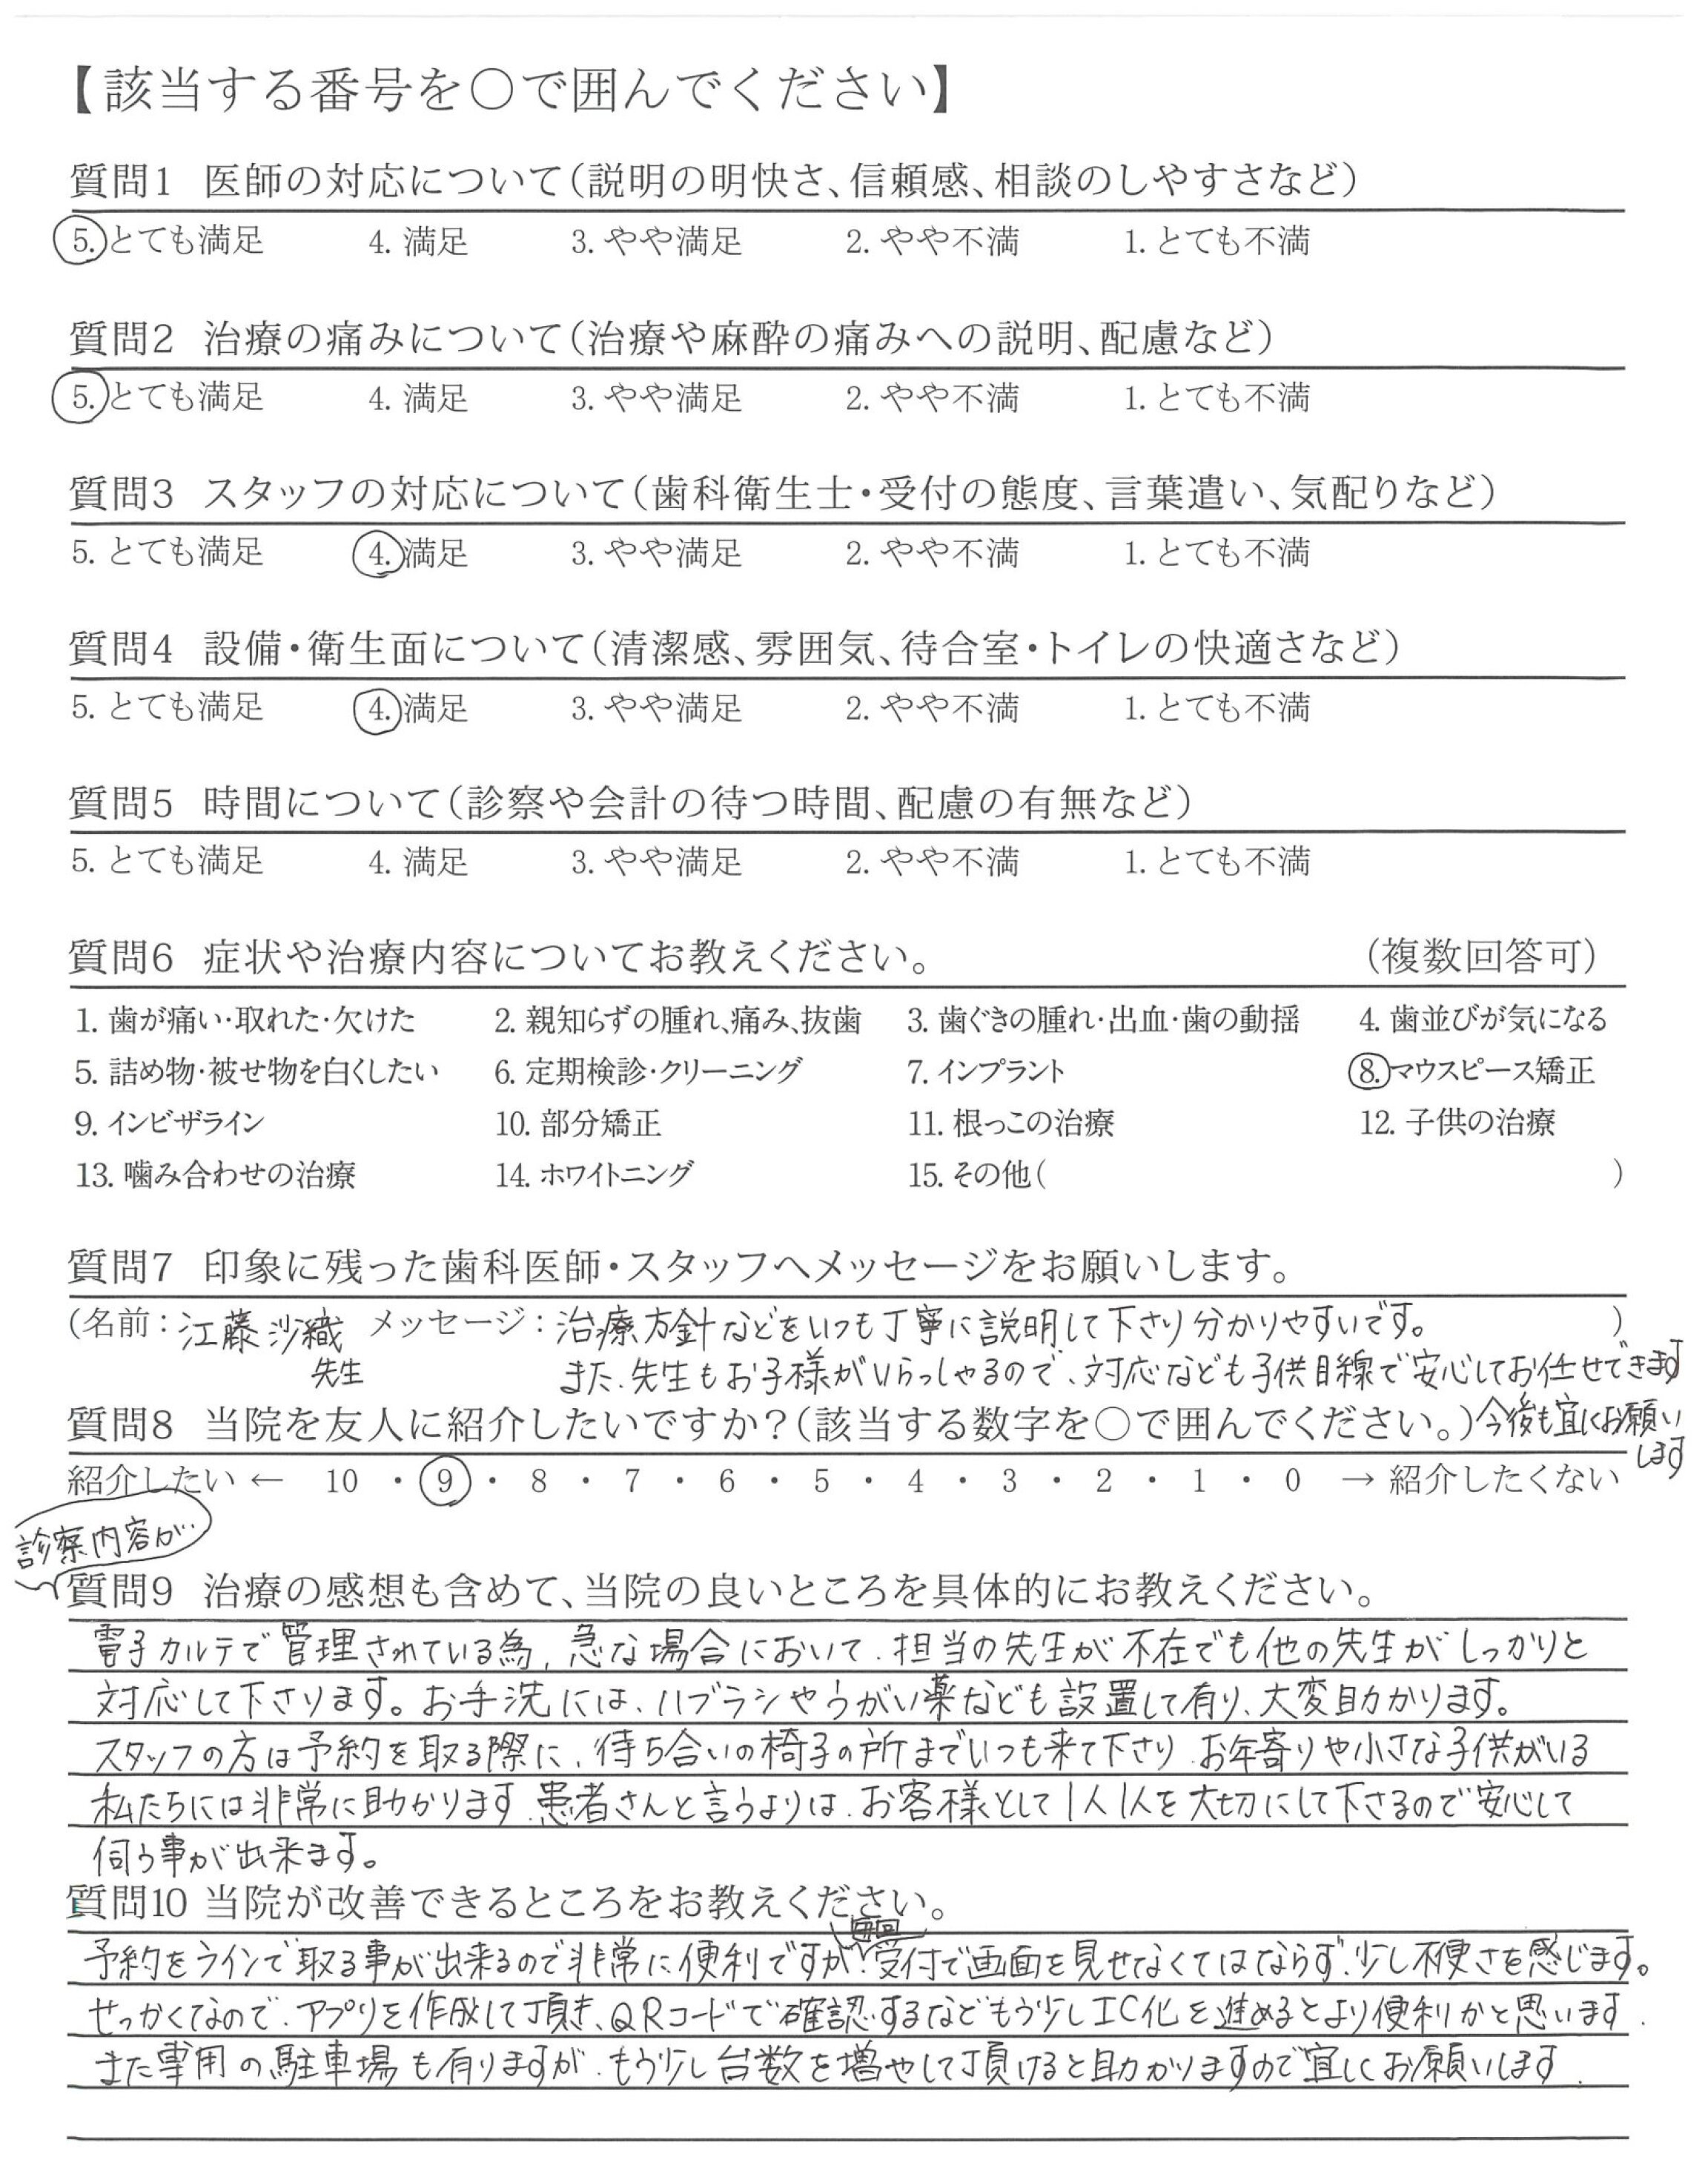 【該当する番号を○で囲んでください】
質問1 医師の対応について(説明の明快さ、信頼感、相談のしやすさなど)
5. とても満足 4. 満足 3. やや満足 2. やや不満 1. とても不満
質問2 治療の痛みについて(治療や麻酔の痛みへの説明、配慮など)
5. とても満足 4. 満足 3. やや満足 2. やや不満 1. とても不満
質問3 スタッフの対応について(歯科衛生士・受付の態度、言葉遣い、気配りなど)
5. とても満足 4. 満足 3. やや満足 2. やや不満 1. とても不満
質問4 設備・衛生面について(清潔感、雰囲気、待合室・トイレの快適さなど)
5. とても満足 4. 満足 3. やや満足 2. やや不満 1. とても不満
質問5 時間について(診察や会計の待つ時間、配慮の有無など)
5. とても満足 4. 満足 3. やや満足 2. やや不満 1. とても不満
質問6 症状や治療内容についてお教えください。 (複数回答可)
1. 歯が痛い・取れた・欠けた 2. 親知らずの腫れ、痛み、抜歯 3. 歯ぐきの腫れ・出血・歯の動揺 4. 歯並びが気になる
5. 詰め物・被せ物を白くしたい 6. 定期検診・クリーニング 7. インプラント 8. マウスピース矯正
9. インビザライン 10. 部分矯正 11. 根っこの治療 12. 子供の治療
13. 噛み合わせの治療 14. ホワイトニング 15. その他( )
質問7 印象に残った歯科医師・スタッフへメッセージをお願いします。
(名前：江藤沙織 メッセージ：治療方針などをいつも丁寧に説明して下さり分かりやすいです。 )
先生 また、先生もお子様がいらっしゃるので、対応なども子供目線で安心してお任せできます
質問8 当院を友人に紹介したいですか？(該当する数字を○で囲んでください。) 今後も宜しくお願い
します
紹介したい ← 10 ・ 9 ・ 8 ・ 7 ・ 6 ・ 5 ・ 4 ・ 3 ・ 2 ・ 1 ・ 0 → 紹介したくない
診察内容が
質問9 治療の感想も含めて、当院の良いところを具体的にお教えください。
電子カルテで管理されている為、急な場合において、担当の先生が不在でも他の先生がしっかりと
対応して下さります。お手洗には、ハブラシやうがい薬なども設置して有り、大変助かります。
スタッフの方は予約を取る際に、待ち合いの椅子の所までいつも来て下さり、お年寄りや小さな子供がいる
私たちには非常に助かります。患者さんと言うよりは、お客様として1人1人を大切にして下さるので安心して
伺う事が出来ます。
質問10 当院が改善できるところをお教えください。
毎回
予約をラインで取る事が出来るので非常に便利ですが、受付で画面を見せなくてはならず、少し不便さを感じます。
せっかくなので、アプリを作成して頂き、QRコードで確認するなどもう少しIC化を進めるとより便利かと思います.
また専用の駐車場も有りますが、もう少し台数を増やして頂けると助かりますので宜しくお願いします.